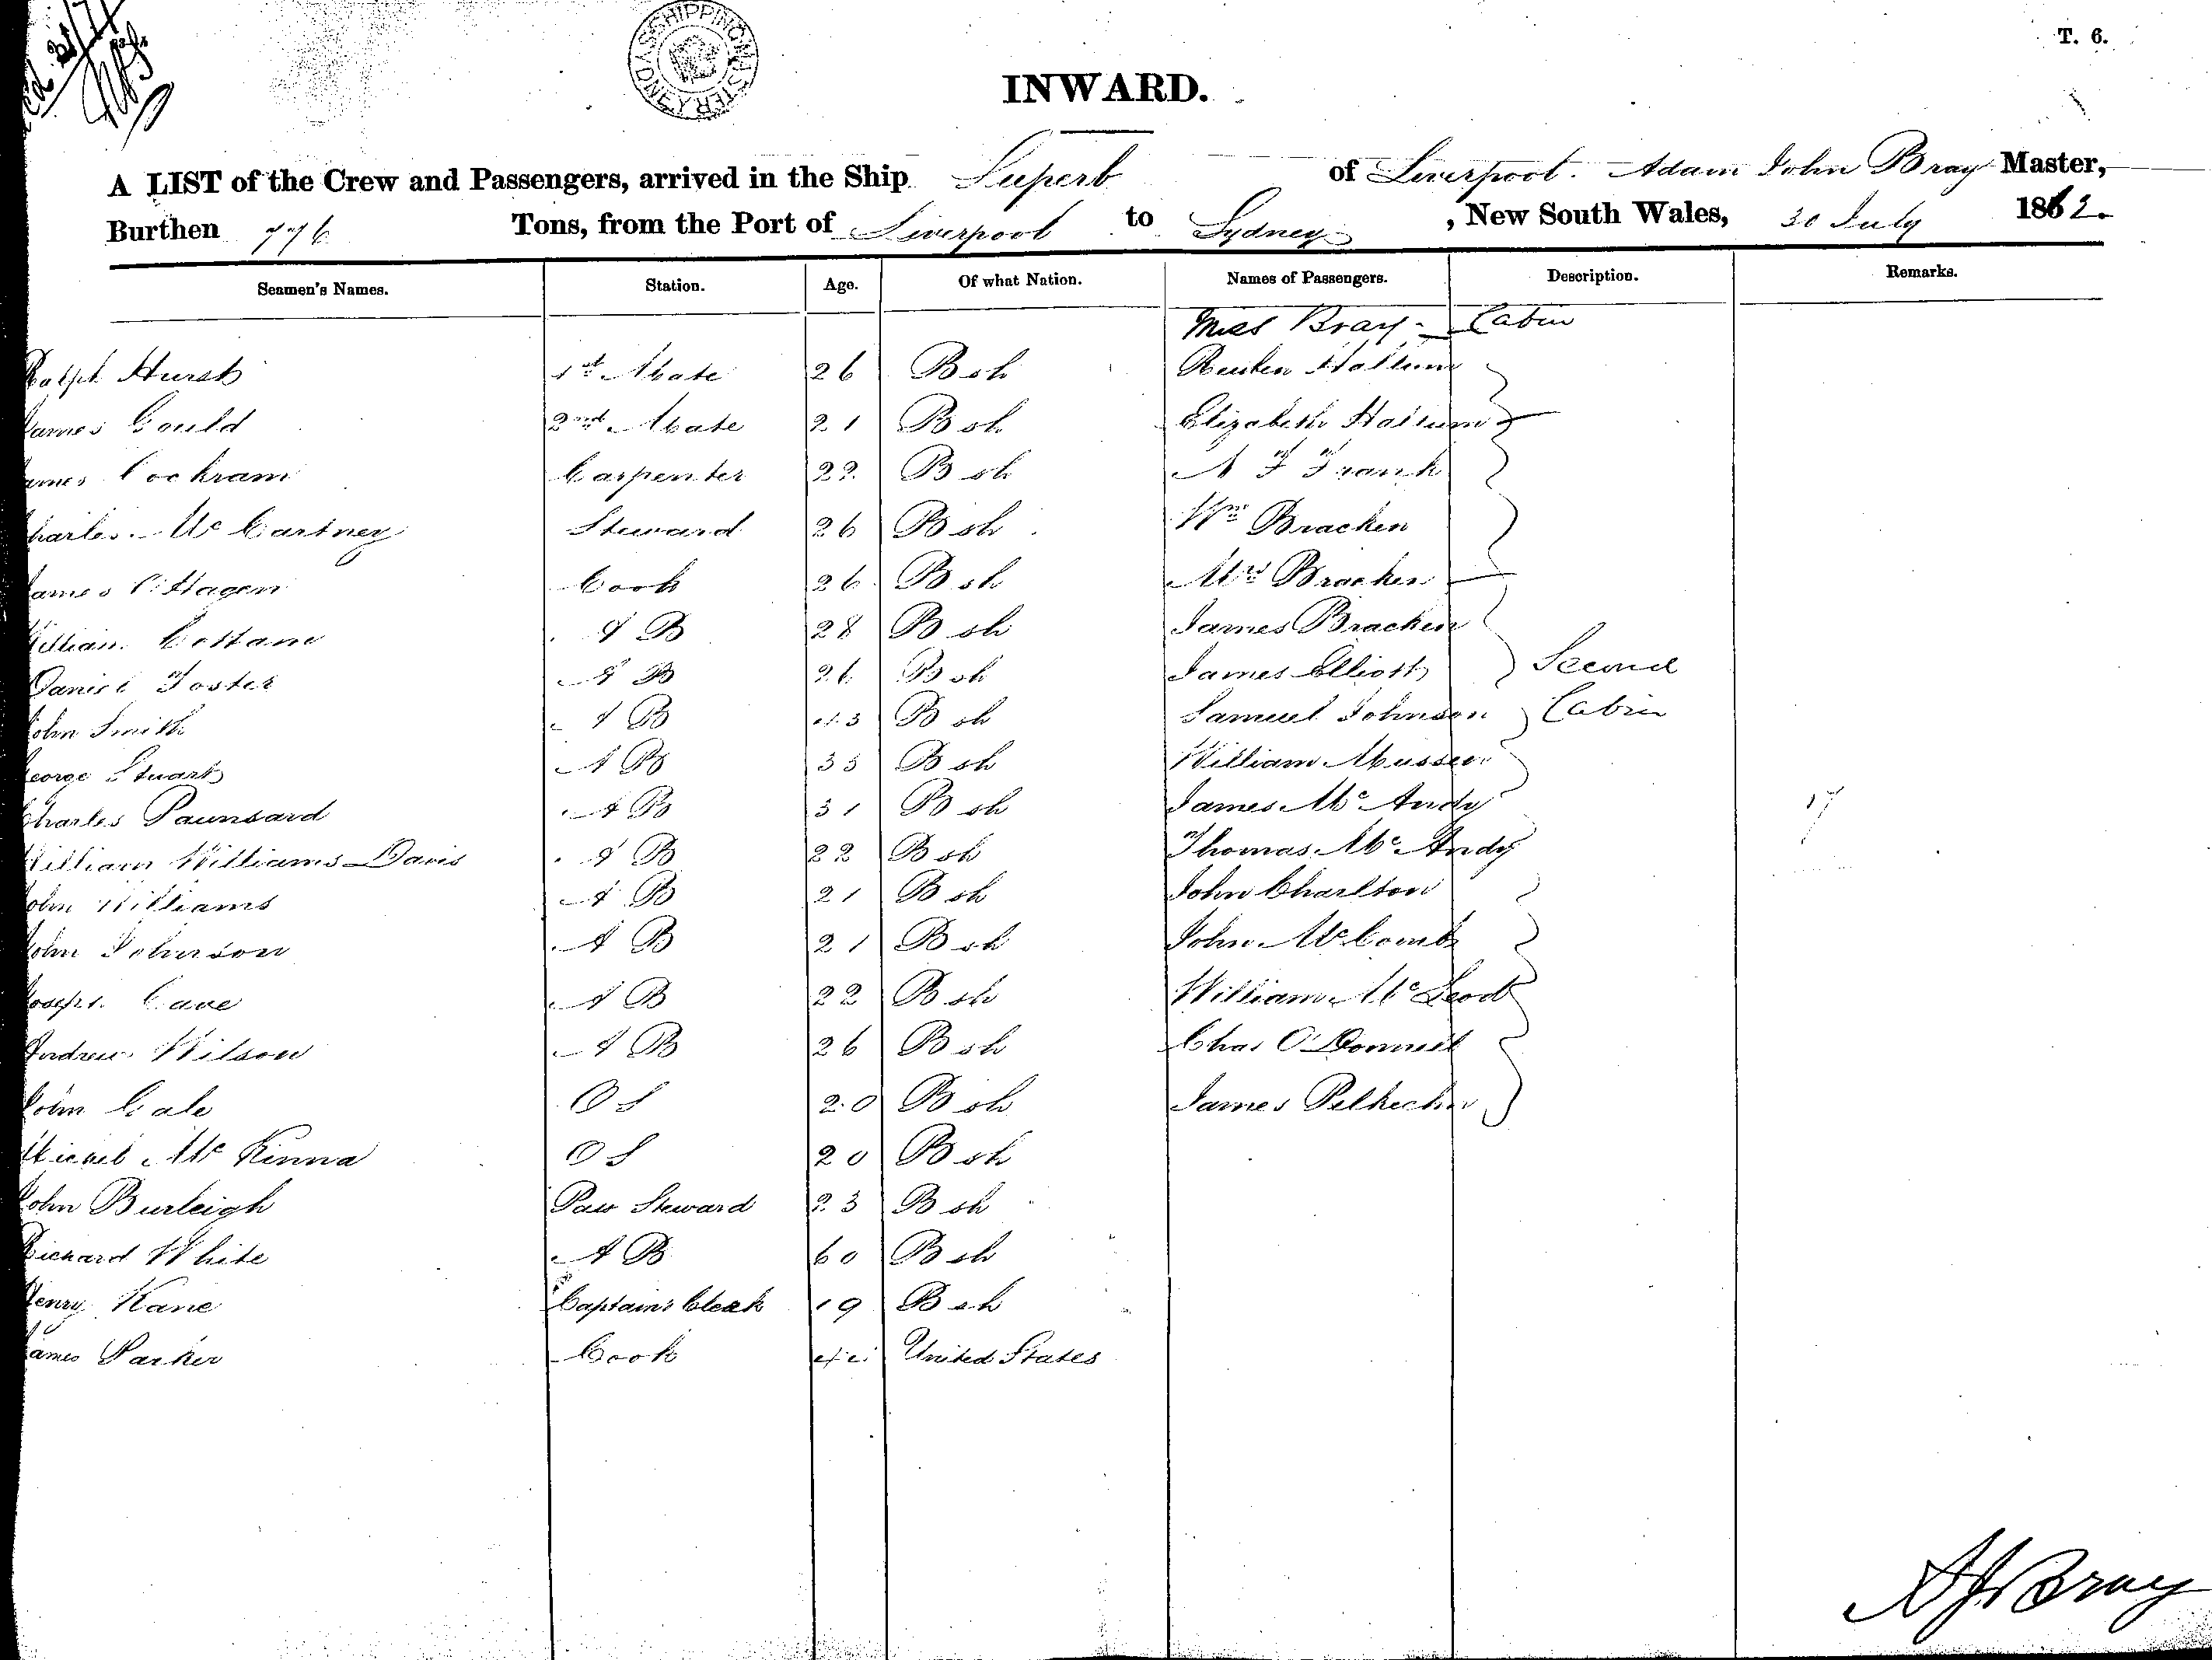 T. 6.
SHIPPING MASTER SYDNEY
INWARD.
A LIST of the Crew and Passengers, arrived in the Ship Superb of Liverpool. Adam John Bray Master,
Burthen 776 Tons, from the Port of Liverpool to Sydney, New South Wales, 30 July 1862.
Seamen's Names. Station. Age. Of what Nation. Names of Passengers. Description. Remarks.
Bray - Cabin
Ralph Hurst 1st Mate 26 Bsh Reuben Hallum
James Gould 2nd Mate 21 Bsh Elizabeth Hallum
James Cochram Carpenter 22 Bsh Frank
Charles McCartney Steward 26 Bsh Wm Bracken
James Hagen Cook 26 Bsh Mrs Bracken
William AB 28 Bsh James Bracken
Daniel Foster AB 26 Bsh James Elliott Second
John Smith AB Bsh Samuel Johnson Cabin
George Stuart AB 35 Bsh William
Charles Paunsard AB 31 Bsh James McAndy 17
William Williams Davis AB 22 Bsh Thomas McAndy
John Williams AB 21 Bsh John Charlton
John Johnson AB 21 Bsh John McComb
Joseph Cave AB 22 Bsh William McLeod
Andrew Wilson AB 26 Bsh Chas O'Donnell
John Cale OS 20 Bsh James
Michael McKinna OS 20 Bsh
John Burleigh Pass Steward 23 Bsh
Richard White AB 60 Bsh
Henry Kane Captains Clerk 19 Bsh
James Parker Cook United States
A J Bray